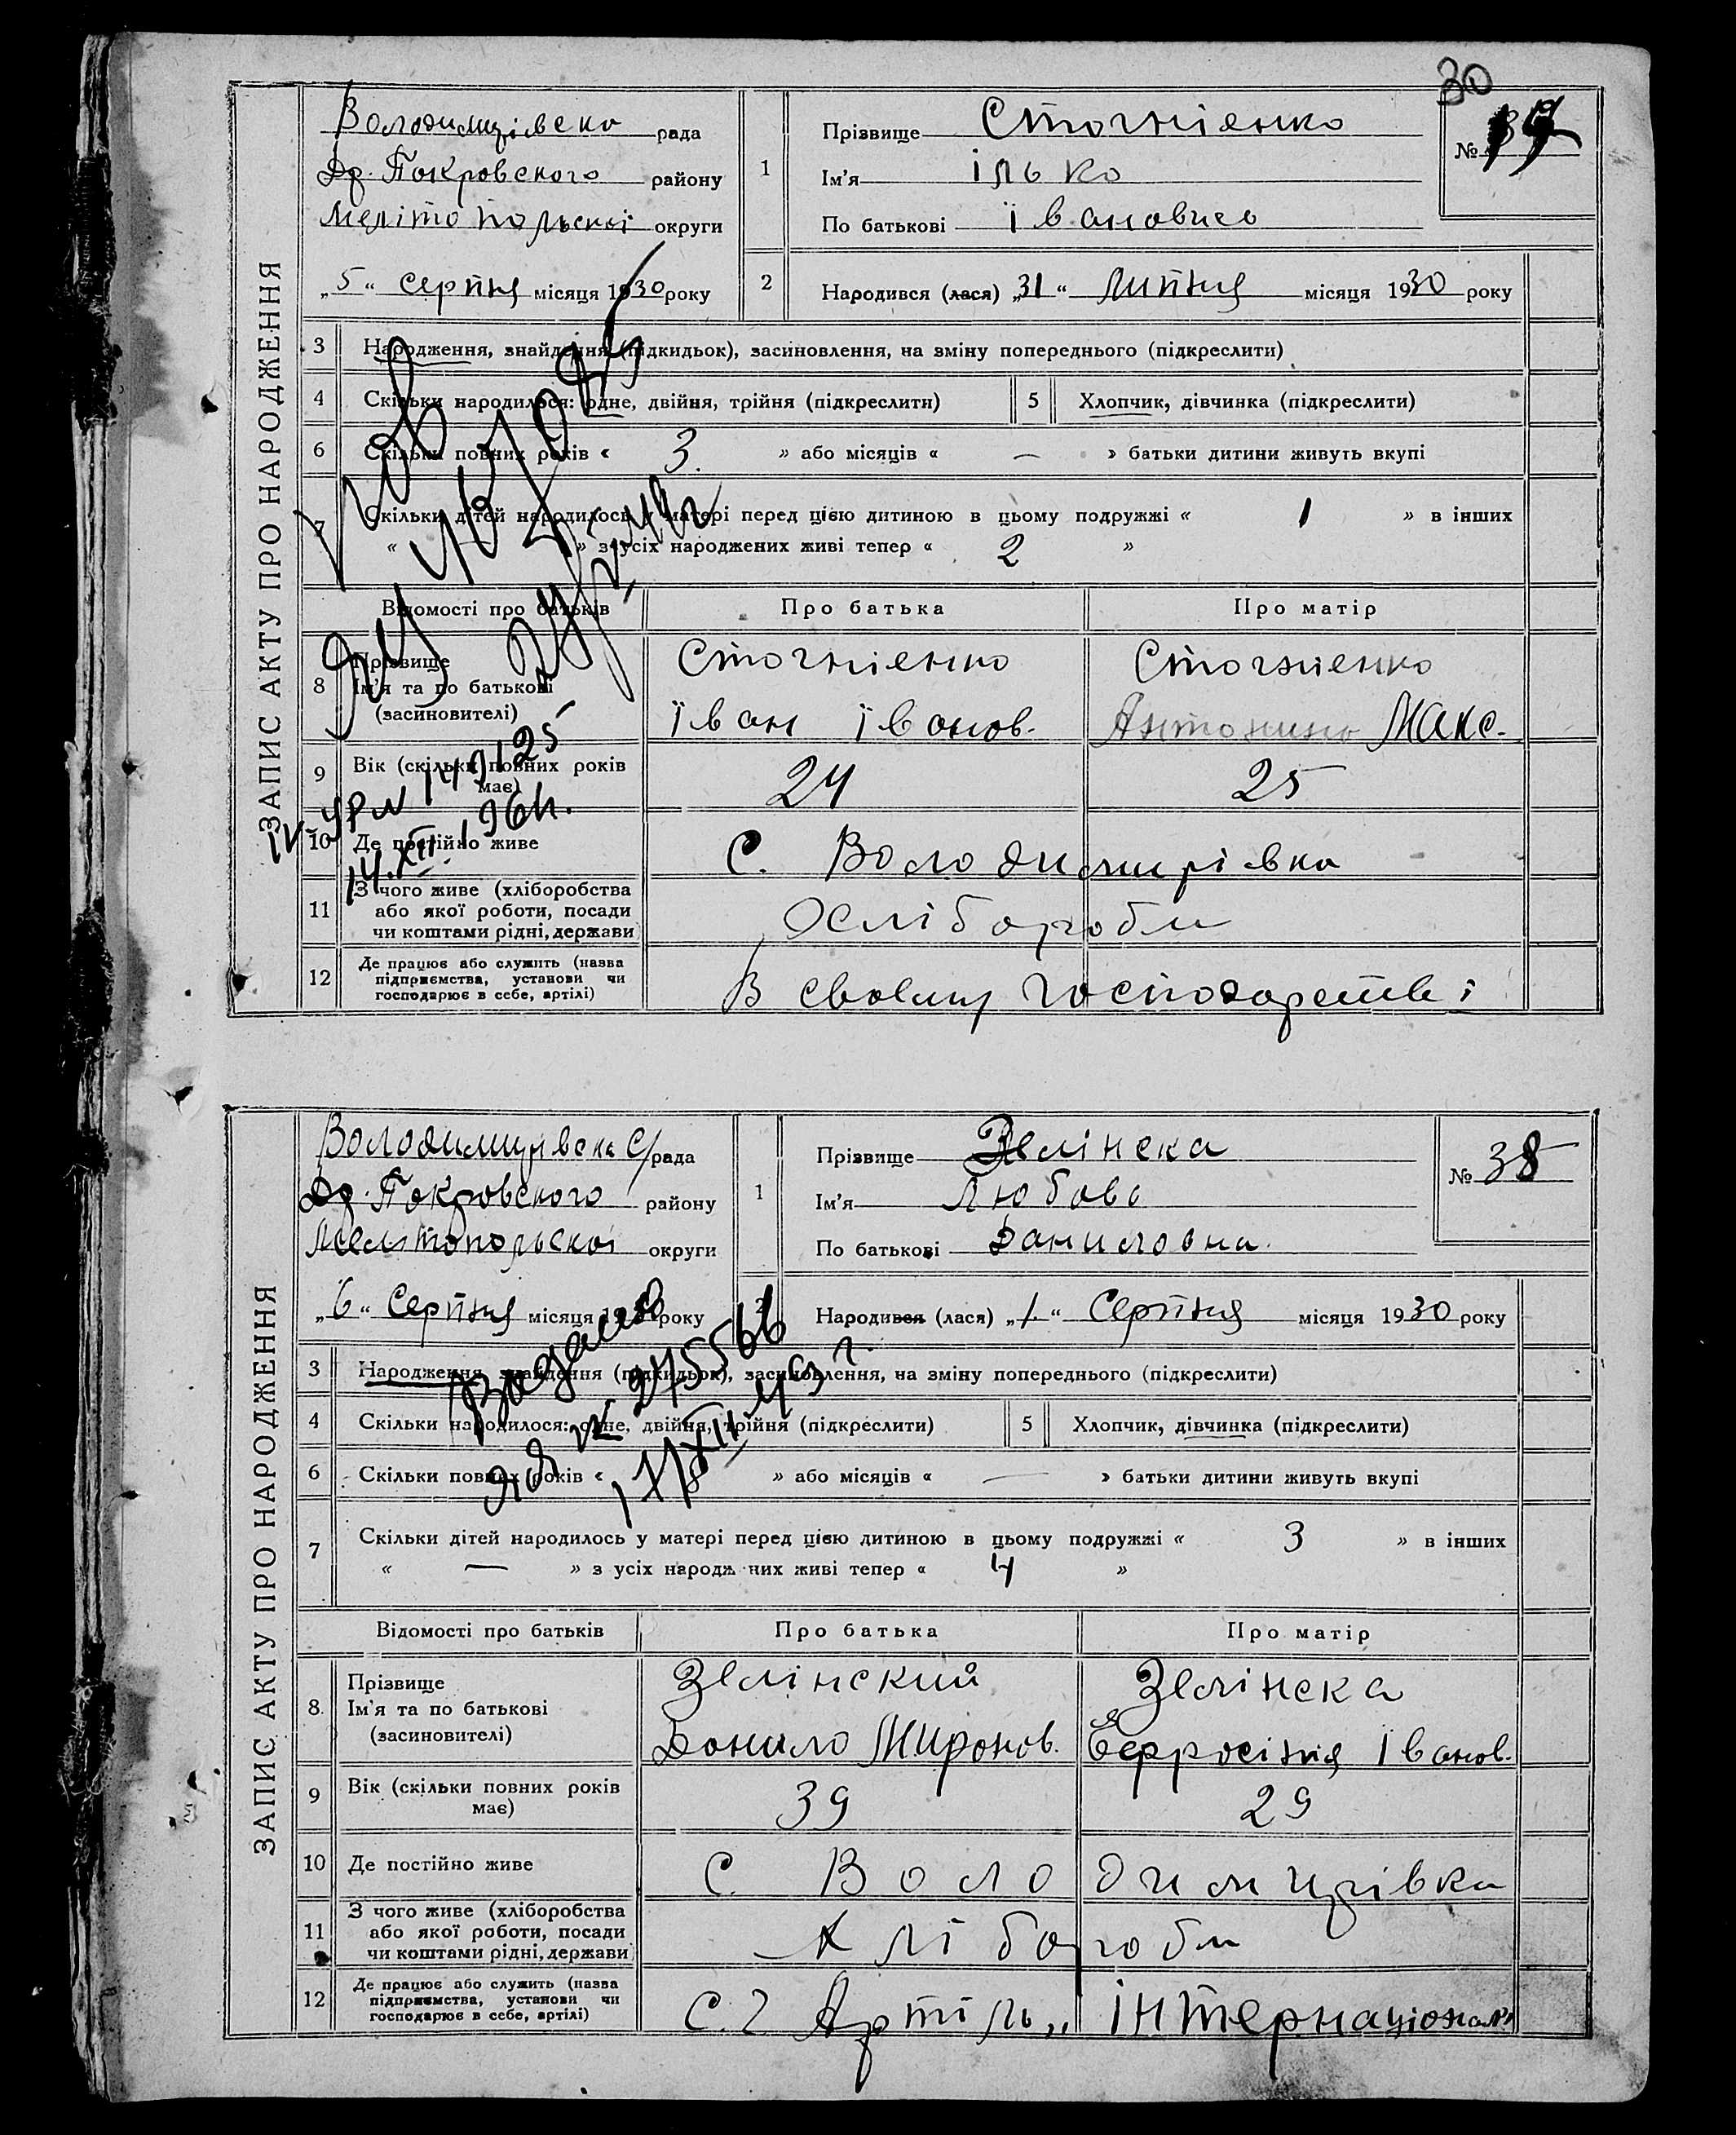 30
ЗАПИС АКТУ ПРО НАРОДЖЕННЯ
Володимирівська рада
Др. Покровського району
Мелітопольскої округи
„5“ серпня місяця 1930 року
1
Прізвище Стогніенко
Ім'я Ілько
По батькові Івановись
№
2
Народився (лася) „31“ липня місяця 1930 року
3 Народження, знайдення (підкидьок), засиновлення, на зміну попереднього (підкреслити)
4 Скільки народилося: одне, двійня, трійня (підкреслити) 5 Хлопчик, дівчинка (підкреслити)
6 Скільки повних років « 3. » або місяців « — » батьки дитини живуть вкупі
7 Скільки дітей народилось у матері перед цією дитиною в цьому подружжі « 1 » в інших
« » з усіх народжених живі тепер « 2 »
Відомості про батьків Про батька Про матір
8 Прізвище
Ім'я та по батькові
(засиновителі)
Стогніенко
Іван Іванов.
Стогніенко
Антонина Макс.
9 Вік (скільки повних років має) 24 25
10 Де постійно живе С. Володимирівка
11 З чого живе (хліборобства
або якої роботи, посади
чи коштами рідні, держави)
Хлібороби
12 Де працює або служить (назва
підприємства, установи чи
господарює в себе, артілі)
В своему господарстві
149125
14.XII.196
ЗАПИС АКТУ ПРО НАРОДЖЕННЯ
Володимирівська С/рада
Др. Покровського району
Мелитопольскої округи
„6“ Серпня місяця 1930 року
1
Прізвище Зелінска
Ім'я Любовь
По батькові Даниловна.
№ 38
2
Народився (лася) „1“ Серпня місяця 1930 року
3 Народження, знайдення (підкидьок), засиновлення, на зміну попереднього (підкреслити)
4 Скільки народилося: одне, двійня, трійня (підкреслити) 5 Хлопчик, дівчинка (підкреслити)
6 Скільки повних років « » або місяців « — » батьки дитини живуть вкупі
7 Скільки дітей народилось у матері перед цією дитиною в цьому подружжі « 3 » в інших
« — » з усіх народжених живі тепер « 4 »
№ 275566
Відомості про батьків Про батька Про матір
8. Прізвище
Ім'я та по батькові
(засиновителі)
Зелінский
Данило Миронов.
Зелінска
Ефросінія Іванов.
9 Вік (скільки повних років має) 39 29
10 Де постійно живе С. Володимирівка
11 З чого живе (хліборобства
або якої роботи, посади
чи коштами рідні, держави)
Хлібороби
12 Де працює або служить (назва
підприємства, установи чи
господарює в себе, артілі)
С. Г Артіль „Інтернаціонал"